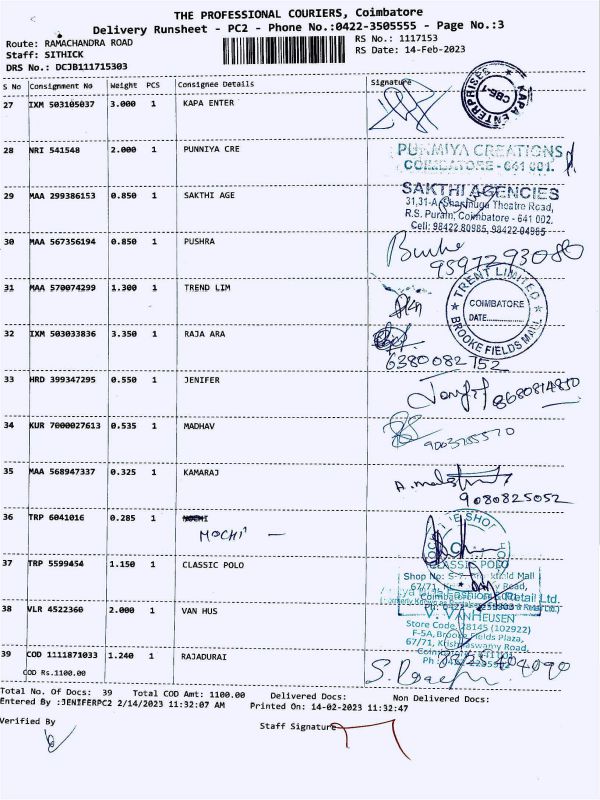 THE PROFESSIONAL COURIERS, Coimbatore
Delivery Runsheet - PC2 - Phone No.:0422-3505555 - Page No.:3
Route: RAMACHANDRA ROAD
RS No.: 1117153
Staff: SITHICK
RS Date: 14-Feb-2023
DRS No.: DCJB111715303
S No Consignment No Weight PCS Consignee Details Signature
27 IXM 503105037 3.000 1 KAPA ENTER
KAPA ENTERPRISES
CBE-1
28 NRI 541548 2.000 1 PUNNIYA CRE
PUNNIYA CREATIONS
COIMBATORE - 641 001.
29 MAA 299386153 0.850 1 SAKTHI AGE
SAKTHI AGENCIES
31,31-A, Shanmuga Theatre Road,
R.S. Puram, Coimbatore - 641 002.
Cell: 98422 80985, 98422 04985
30 MAA 567356194 0.850 1 PUSHRA
9597293086
31 MAA 570074299 1.300 1 TREND LIM
TRENT LIMITED
COIMBATORE
DATE
BROOKE FIELDS MALL
32 IXM 503033836 3.350 1 RAJA ARA
6380082752
33 HRD 399347295 0.550 1 JENIFER
8680814850
34 KUR 7000027613 0.535 1 MADHAV
35 MAA 568947337 0.325 1 KAMARAJ
9080825052
36 TRP 6041016 0.285 1
MOCHI
37 TRP 5599454 1.150 1 CLASSIC POLO
CLASSIC POLO
38 VLR 4522360 2.000 1 VAN HUS
V. VANHEUSEN
Store Code 28145 (102922)
F-5A, Brooke Fields Plaza,
67/71, Krishnaswamy Road,
39 COD 1111871033 1.240 1 RAJADURAI
COD Rs.1100.00
Total No. Of Docs: 39 Total COD Amt: 1100.00 Delivered Docs: Non Delivered Docs:
Entered By :JENIFERPC2 2/14/2023 11:32:07 AM Printed On: 14-02-2023 11:32:47
Verified By
Staff Signature